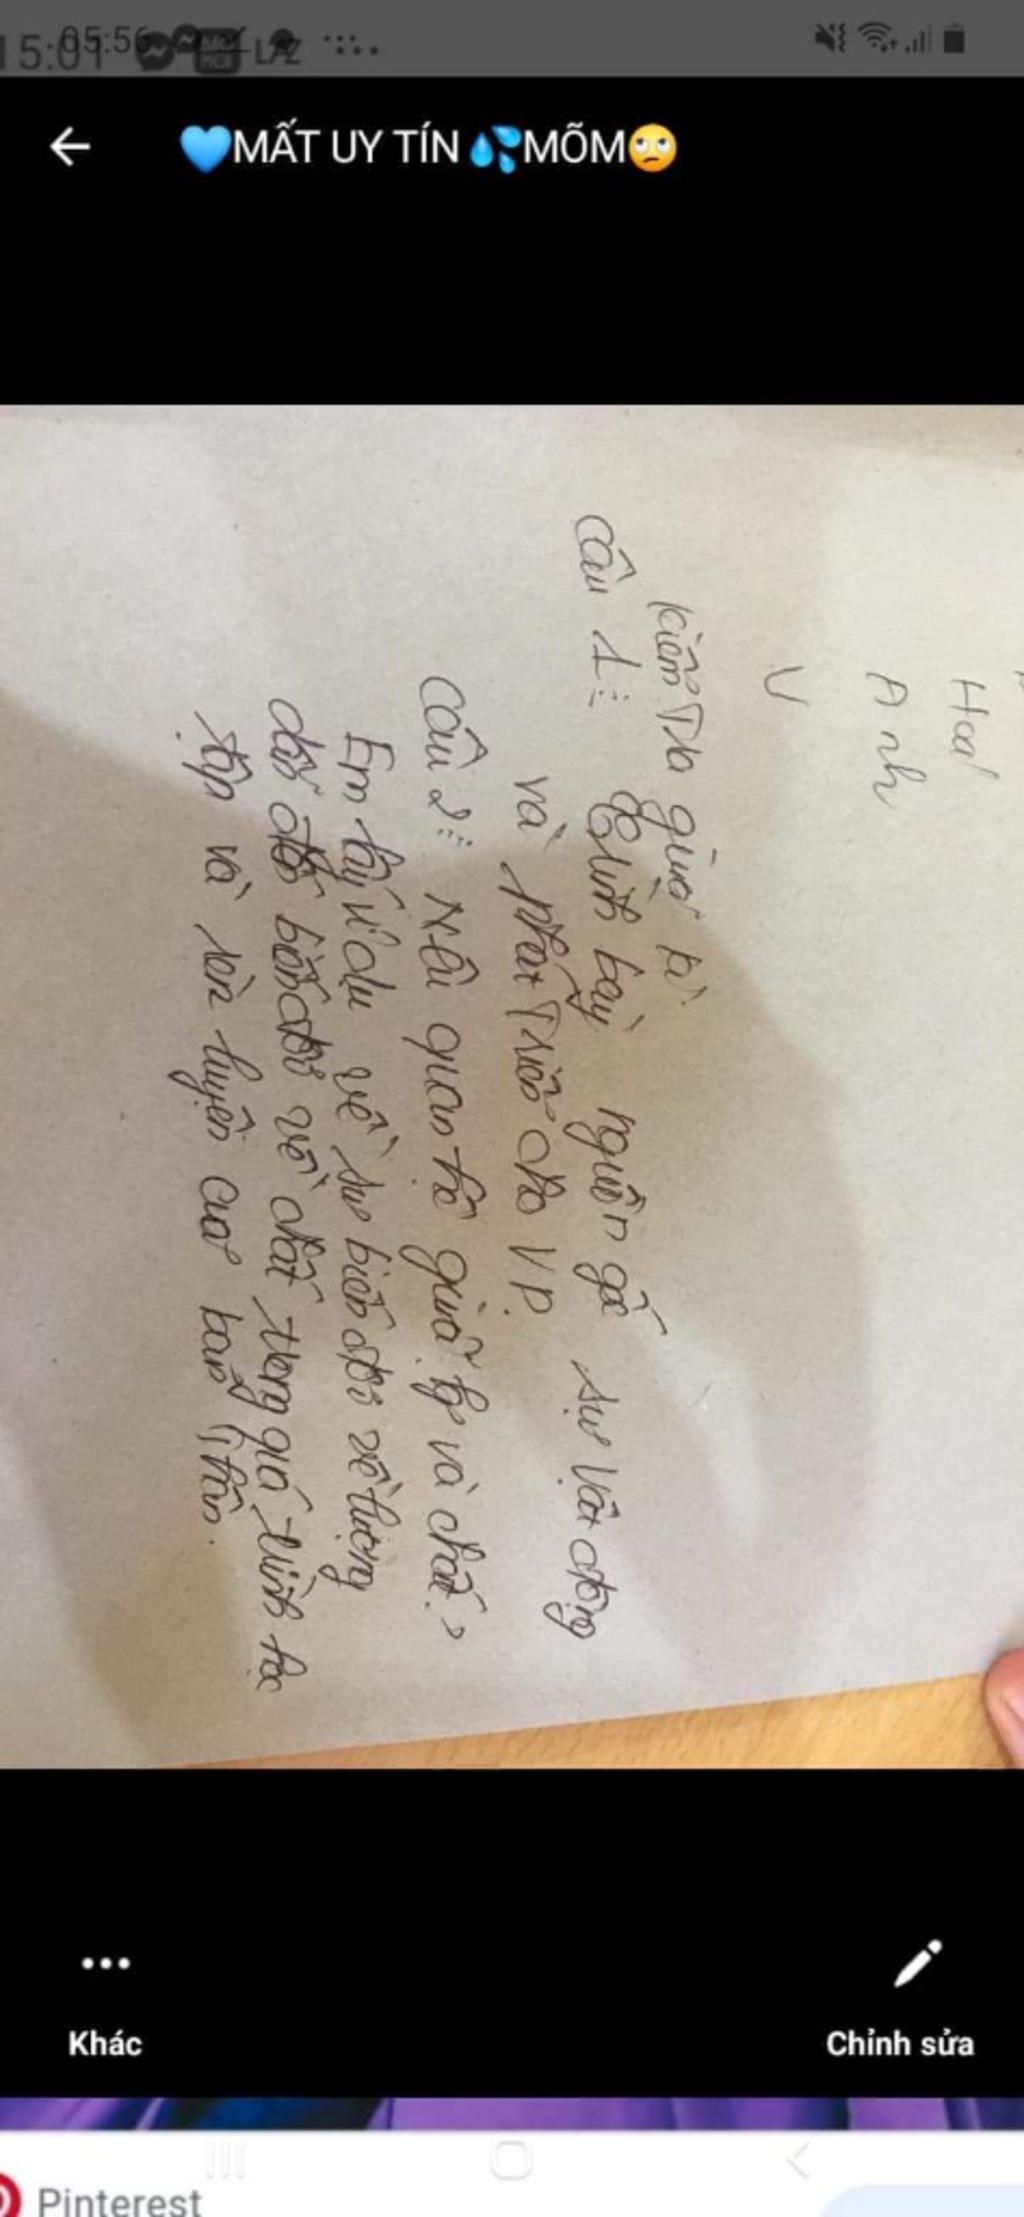 15:01 05:56
LAZ
💙MẤT UY TÍN 💦MÕM🙄
Hoá
Anh
V
Kiểm Tra giữa kì
Câu 1: Trình bày nguồn gốc sự vận động
và phát triển cho VD.
Câu 2: Nêu quan hệ giữa lg và chất?
Em lấy ví dụ về sự biến đổi về lượng
dẫn đến biến đổi về chất trong quá trình học
tập và rèn luyện của bản thân.
Khác
Chỉnh sửa
Pinterest